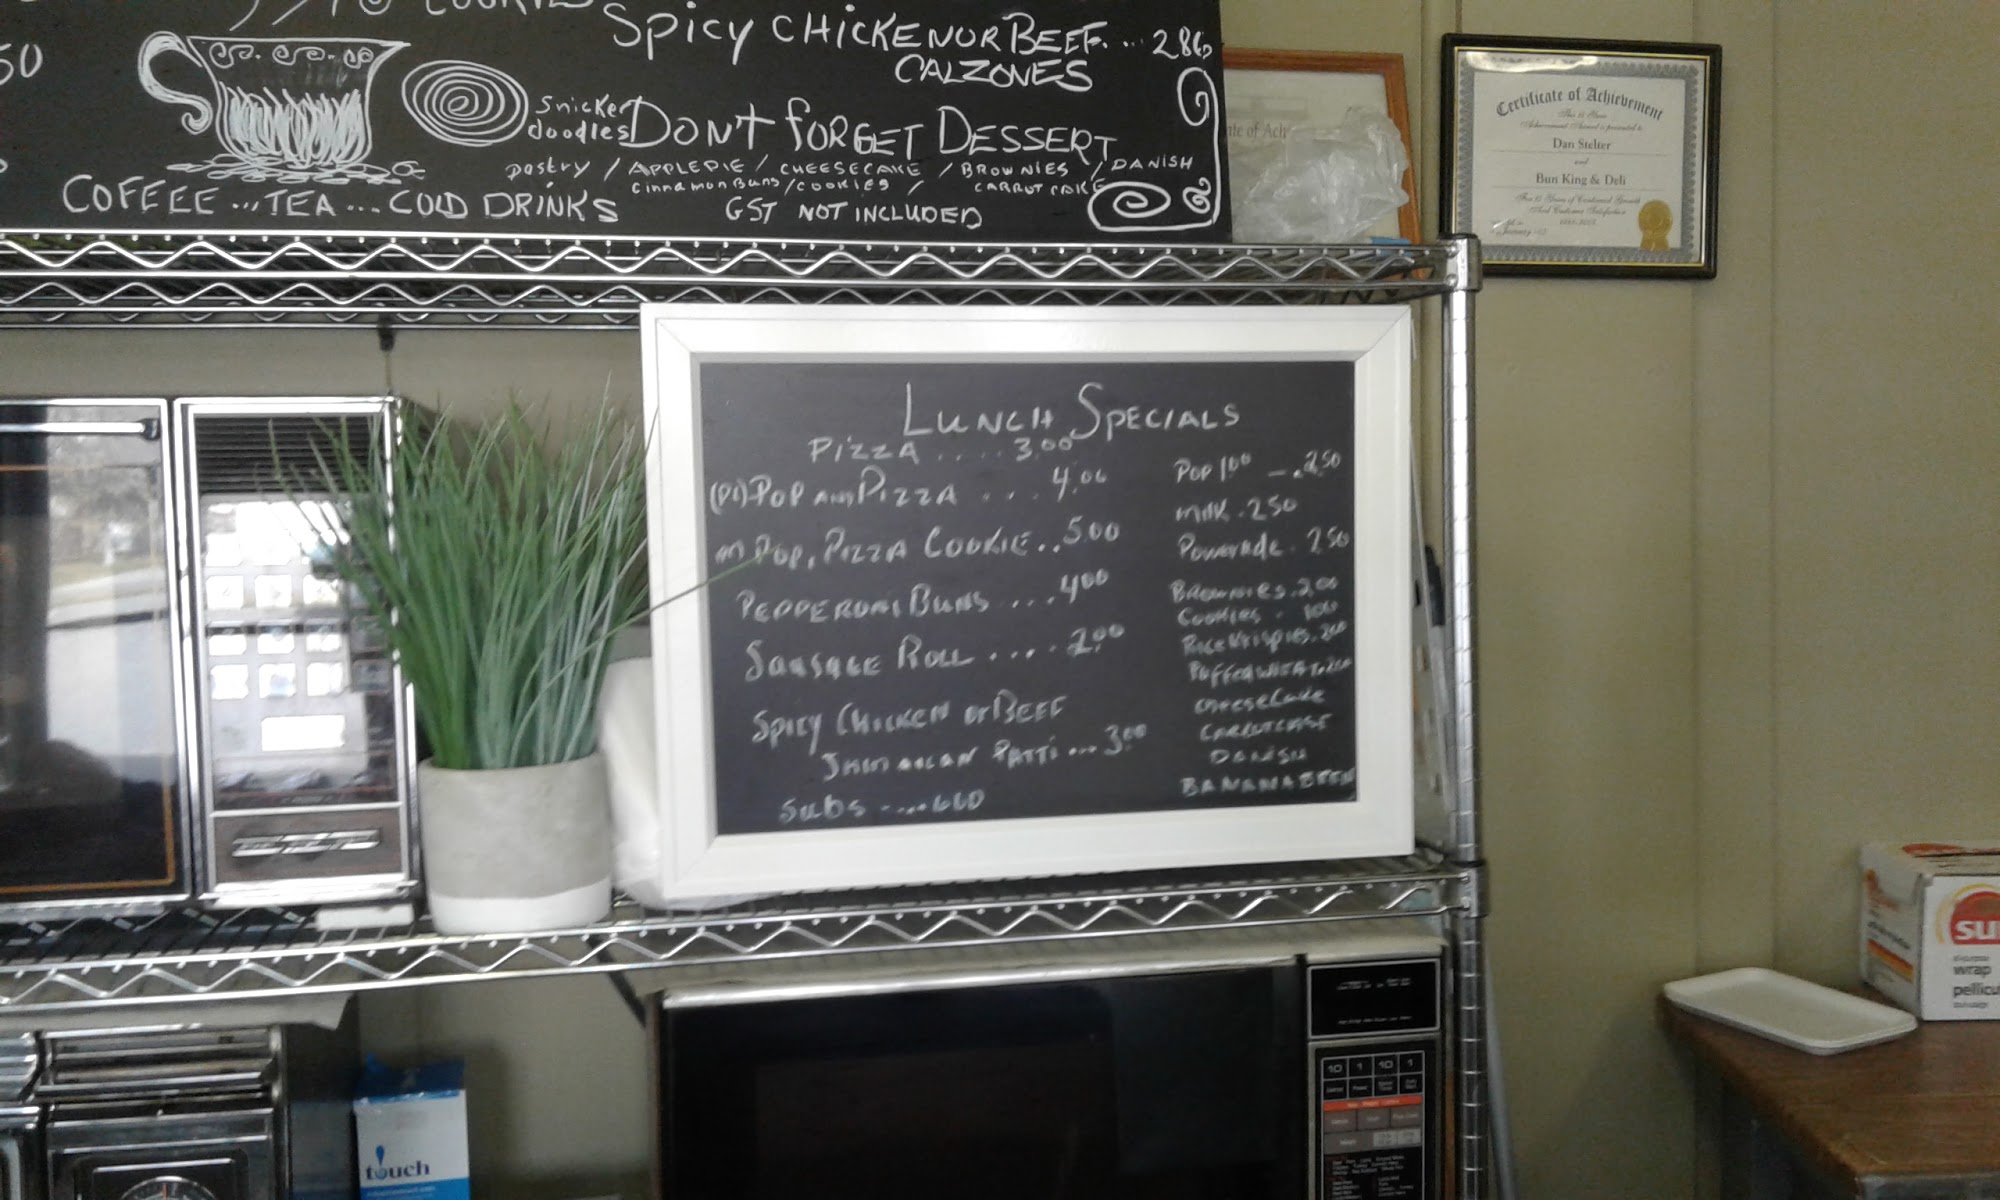 50
COOKIE
SPicY CHiCKEN OR BEEF... 2.86
CALZONES
Snicker
doodles
DONT FORGET DESSERT
pastry / APPLEPIE / CHEESECAKE / BROWNIES / DANISH
cinnamon Buns / COOKIES / CARROT CAKE
COFFEE ...TEA ... COLD DRINKS
GST NOT INCLUDED
Certificate of Achievement
Dan Stelter
and
Bun King & Deli
LUNCH SPECIALS
PiZZA .... 3.00
POP AND PIZZA ... 4.00
POP, PIZZA COOKIE.. 5.00
PEPPERONI BUNS .... 4.00
SAUSAGE ROLL .... 2.00
SPICY CHICKEN or BEEF
JAMAICAN PATTI ... 3.00
SUBS ....
POP 1.00 - . 2.50
Milk . 250
Powerade . 250
BROWNIES . 2.00
Cookies . 100
RICE KRISPIES.
PUFFED WHEAT
CHeeseCake
CARROTCAKE
DANISH
BANANA
touch
wrap
10 1 10 1